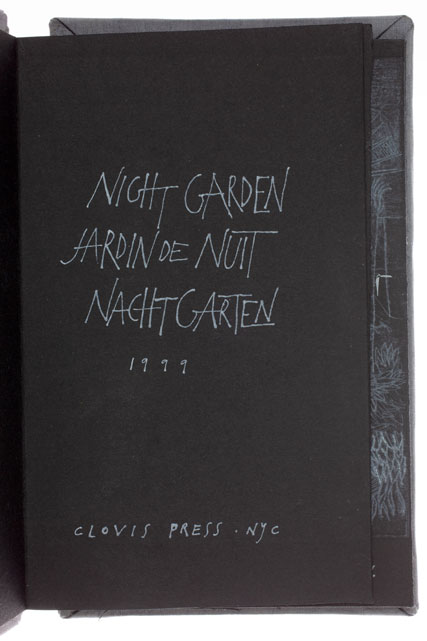 NIGHT GARDEN
JARDIN DE NUIT
NACHTGARTEN
1999
CLOVIS PRESS · NYC